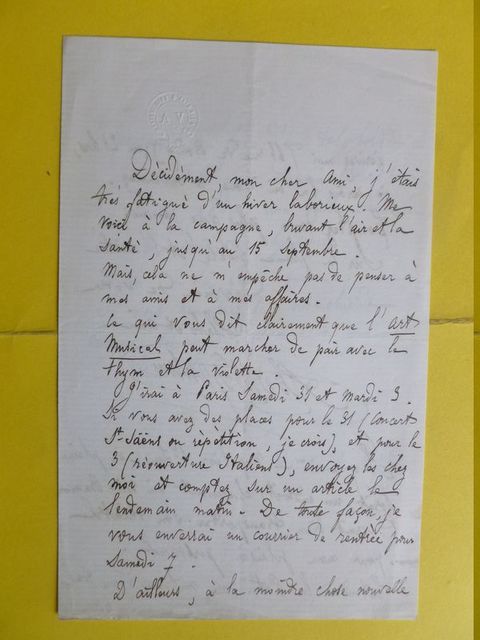 Décidément, mon cher Ami, j'étais
très fatigué d'un hiver laborieux. Me
voici à la campagne, buvant l'air et la
santé, jusqu'au 15 septembre.
Mais, cela ne m'empêche pas de penser à
mes amis et à mes affaires.
Ce qui vous dit clairement que l'art
Musical peut marcher de pair avec le
thym et la violette.
J'irai à Paris Samedi 31 et Mardi 3.
Si vous avez des places pour le 31 (Concert
St-Saëns ou répétition, je crois), et pour le
3 (réouverture Italiens), envoyez les chez
moi et comptez sur un article le
lendemain matin. De toute façon, je
vous enverrai un courrier de rentrée pour
Samedi 7.
D'ailleurs, à la moindre chose nouvelle